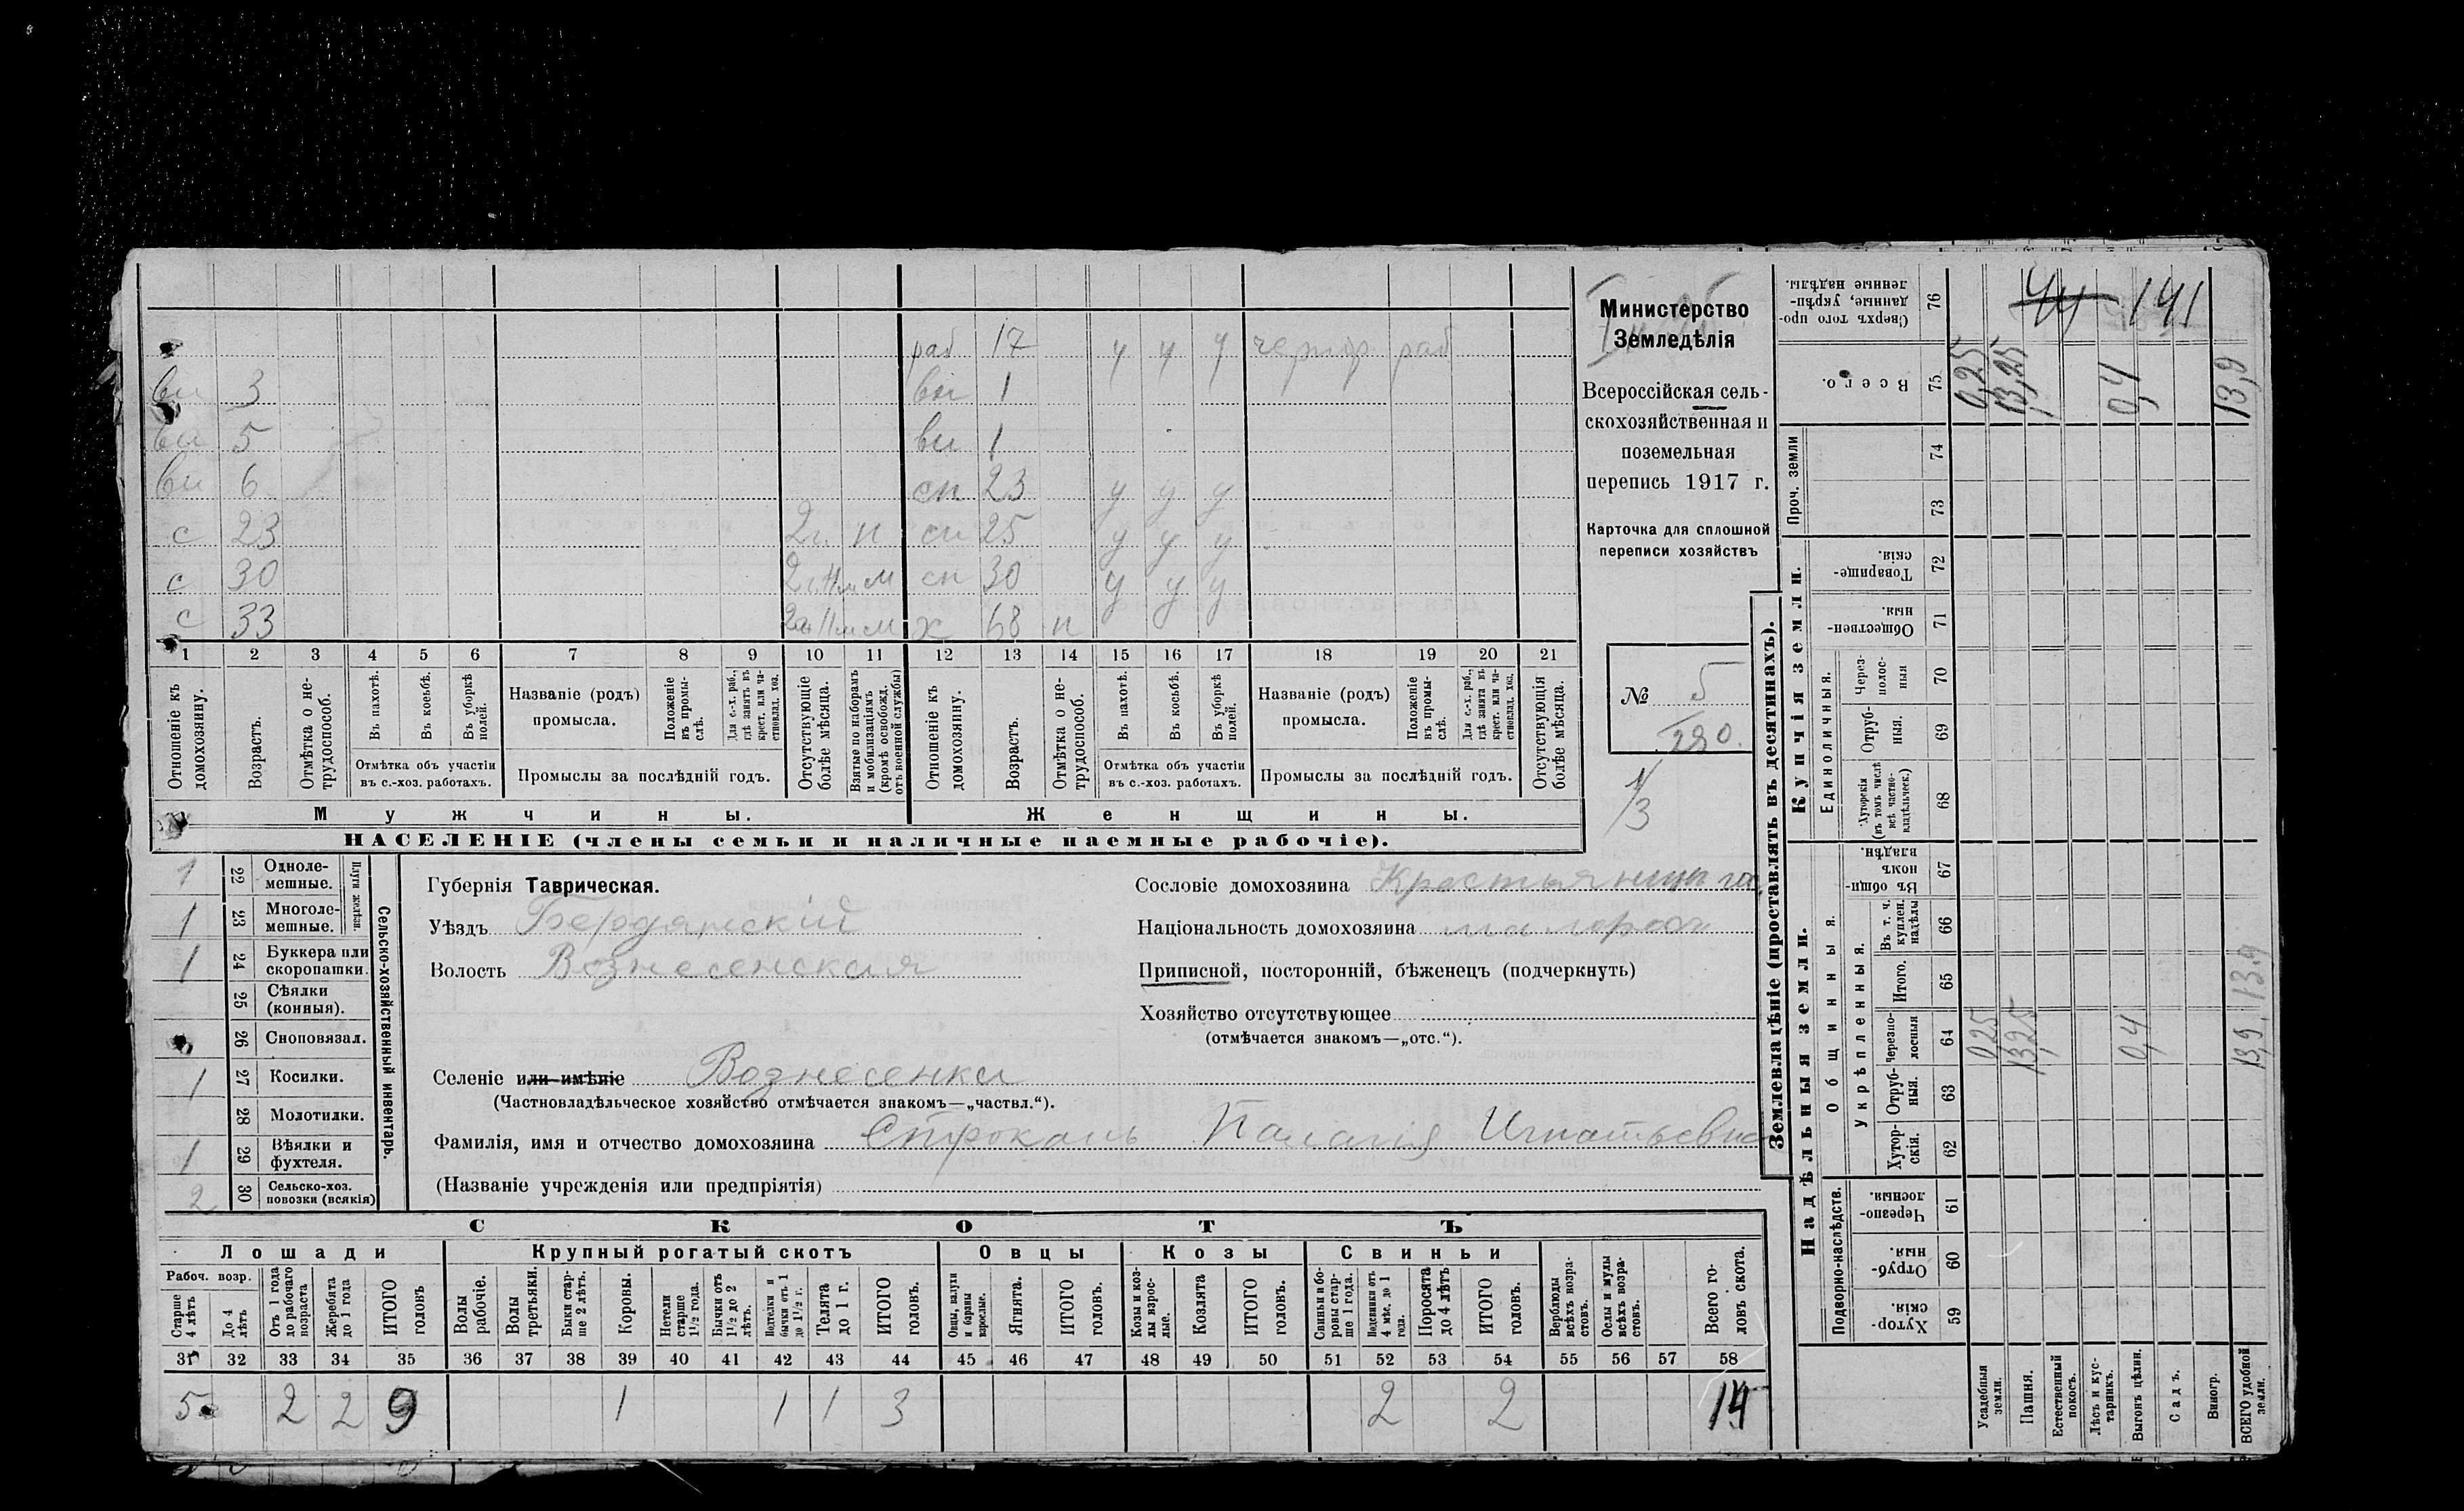 Министерство
Земледѣлія
Всероссійская сель-
скохозяйственная и
поземельная
перепись 1917 г.
Карточка для сплошной
переписи хозяйствъ
№ 5
280.
1/3
раб 17 у у у чернор раб
вн 3 вн 1
вн 5 вн 1
вн 6 сн 23 у у у
с 23 2г. н сн 25 у у у
с 30 2г. 11м м сн 30 у у у
с 33 11м м х 68 н
1 2 3 4 5 6 7 8 9 10 11 12 13 14 15 16 17 18 19 20 21
Отношеніе къ домохозяину.
Возрастъ.
Отмѣтка о не-трудоспособ.
Въ пахотѣ.
Въ косьбѣ.
Въ уборкѣ полей.
Отмѣтка объ участіи
въ с.-хоз. работахъ.
Названіе (родъ)
промысла.
Положеніе въ промы-слѣ.
Для с.-х. раб., гдѣ занятъ въ крест. или ча-стновлад. хоз.
Промыслы за послѣдній годъ.
Отсутствующіе болѣе мѣсяца.
Взятые по наборамъ и мобилизаціямъ (кромѣ освобожд. отъ военной службы)
Отношеніе къ домохозяину.
Возрастъ.
Отмѣтка о не-трудоспособ.
Въ пахотѣ.
Въ косьбѣ.
Въ уборкѣ полей.
Отмѣтка объ участіи
въ с.-хоз. работахъ.
Названіе (родъ)
промысла.
Положеніе въ промы-слѣ.
Для с.-х. раб., гдѣ занята въ крест. или ча-стновлад. хоз.
Промыслы за послѣдній годъ.
Отсутствующія болѣе мѣсяца.
Мужчины. Женщины.
НАСЕЛЕНІЕ (члены семьи и наличные наемные рабочіе).
Сельско-хозяйственный инвентарь.
Плуги желѣзн.
1 22 Одноле-мешные.
1 23 Многоле-мешные.
1 24 Буккера или скоропашки.
25 Сѣялки (конныя).
26 Сноповязал.
1 27 Косилки.
28 Молотилки.
1 29 Вѣялки и фухтеля.
2 30 Сельско-хоз. повозки (всякія)
Губернія Таврическая.
Уѣздъ Бердянскій
Волость Вознесенская
Селеніе или имѣніе Вознесенка
(Частновладѣльческое хозяйство отмѣчается знакомъ—„частвл.“).
Фамилія, имя и отчество домохозяина Строкань Палагія Игнатьевна
(Названіе учрежденія или предпріятія)
Сословіе домохозяина
Національность домохозяина малоросс
Приписной, посторонній, бѣженецъ (подчеркнуть)
Хозяйство отсутствующее
(отмѣчается знакомъ—„отс.“).
СКОТЪ
Лошади Крупный рогатый скотъ Овцы Козы Свиньи
Рабоч. возр.
Старше 4 лѣтъ
До 4 лѣтъ
Отъ 1 года до рабочаго возраста
Жеребята до 1 года
ИТОГО головъ
Волы рабочіе.
Волы третьяки.
Быки стар-ше 2 лѣтъ.
Коровы.
Нетели старше 1½ года.
Бычки отъ 1½ до 2 лѣтъ.
Подтелки и бычки отъ 1 до 1½ г.
Телята до 1 г.
ИТОГО головъ.
Овцы, валухи и бараны взрослые.
Ягнята.
ИТОГО головъ.
Козы и коз-лы взрос-лые.
Козлята
ИТОГО головъ.
Свиньи и бо-ровы стар-ше 1 года.
Подсвинки отъ 4 мѣс. до 1 года.
Поросята до 4 лѣтъ
ИТОГО головъ.
Верблюды всѣхъ возра-стовъ.
Ослы и мулы всѣхъ возра-стовъ.
Всего го-ловъ скота.
31 32 33 34 35 36 37 38 39 40 41 42 43 44 45 46 47 48 49 50 51 52 53 54 55 56 57 58
5 2 2 9 1 1 1 3 2 2 14
Землевладѣніе (проставлять въ десятинахъ).
Надѣльныя земли. Купчія земли.
Подворно-наслѣдств.
Общинныя.
Укрѣпленныя.
Единоличныя.
Проч. земли
Хутор-скія. 59
Отруб-ныя. 60
Черезпо-лосныя. 61
Хутор-скія. 62
Отруб-ныя. 63
Черезпо-лосныя 64
Итого. 65
Въ т. ч. куплен. надѣлы 66
Въ общин-номъ владѣн. 67
Хуторскія (въ томъ числѣ всѣ частно-владѣльческ.) 68
Отруб-ныя. 69
Через-полос-ныя 70
Обществен-ныя. 71
Товарище-скія. 72
73
74
Всего. 75
Сверхъ того про-данные, укрѣп-ленные надѣлы. 76
Усадебныя земли. 0,25 0,25
Пашня. 13,25 13,25
Естественный покосъ.
Лѣсъ и кус-тарникъ.
Выгонъ цѣлин. 0,4 0,4
Садъ.
Виногр.
ВСЕГО удобной земли. 13,9 13.9 13,9
44 141